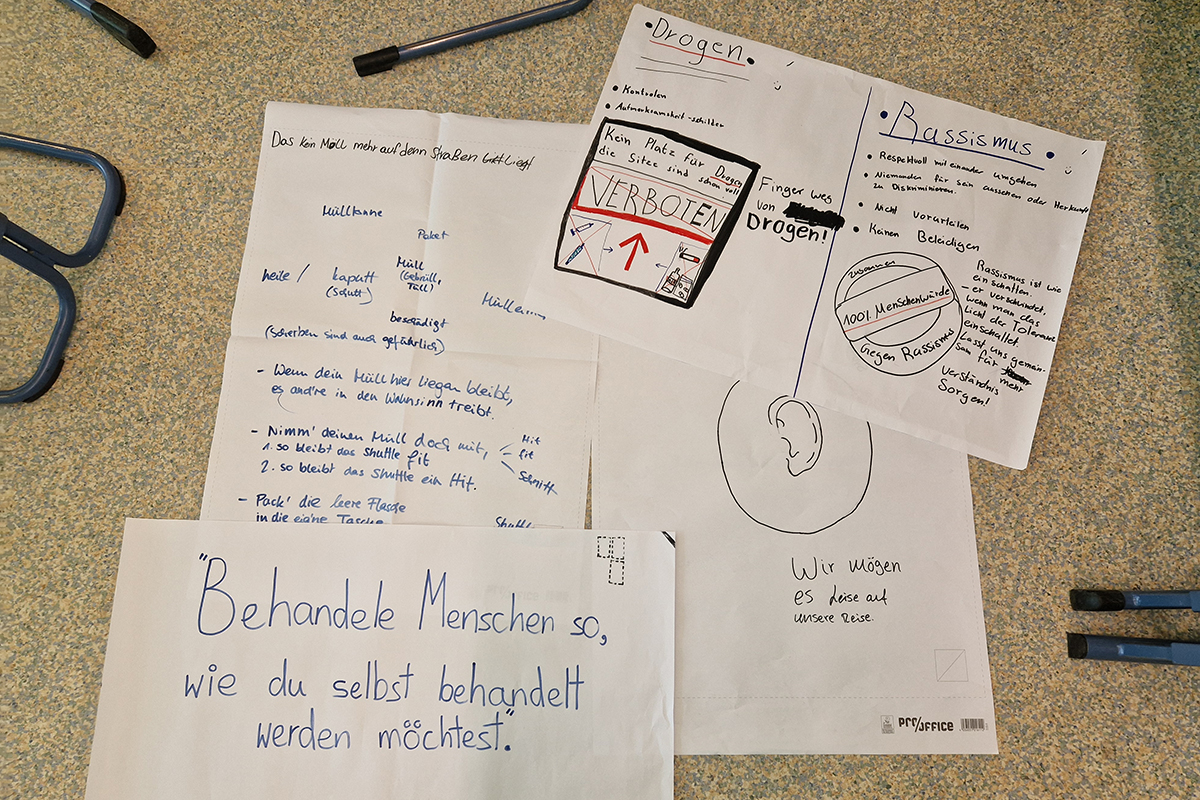 Das kein Müll mehr auf denn Straßen liegt
Mülltonne
Paket
heile / kaputt
(Schutt)
Müll
(Geröll,
Tüll)
beschädigt
(Scherben sind auch gefährlich)
- Wenn dein Müll hier liegen bleibt,
es and're in den Wahnsinn treibt.
- Nimm' deinen Müll doch mit,
1. so bleibt das Shuttle fit
2. so bleibt das Shuttle ein Hit.
Hit
fit
Schnitt
- Pack' die leere Flasche
in die eig'ne Tasche
Shuttle
• Drogen •
• Kontrolen
• Aufmerksamheit-schilder
Kein Platz für Drogen
die Sitze sind schon voll
VERBOTEN
Finger weg
von
Drogen!
• Rassismus •
• Respektvoll mit einander umgehen
• Niemanden für sein aussehen oder Herkunft
zu Diskriminieren.
• Nicht vorurteilen
• Keinen Beleidigen
zusammen
100% Menschenwürde
Gegen Rassismus
Rassismus ist wie
ein schatten.
- er verschwindet,
wenn man das
Licht der Toleranz
einschaltet.
Lasst uns gemein-
sam für mehr
Verständnis
Sorgen!
Wir mögen
es Leise auf
unsere Reise.
PRO/OFFICE
"Behandele Menschen so,
wie du selbst behandelt
werden möchtest".